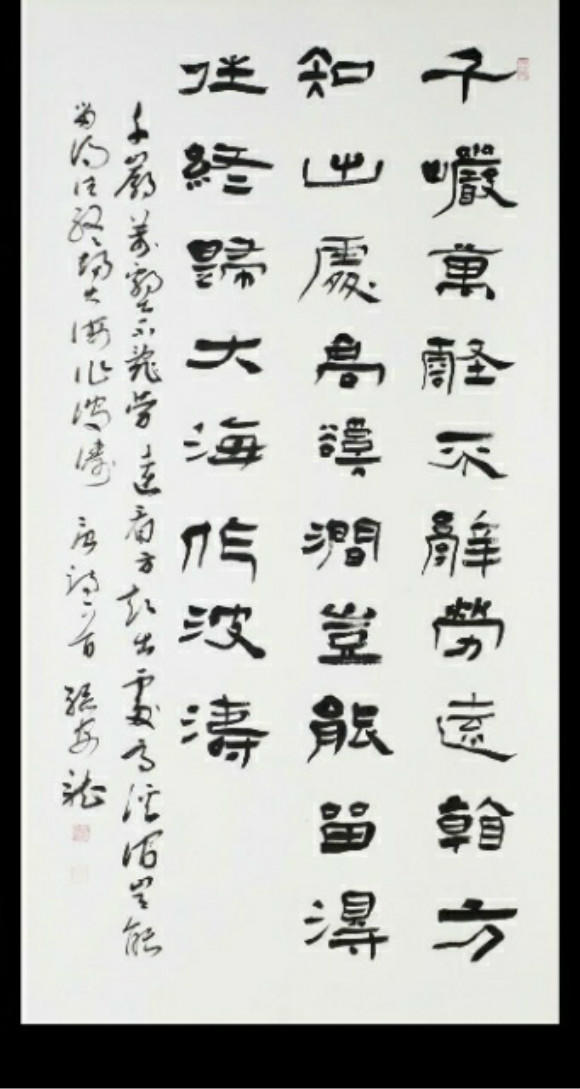 千巖萬壑不辭勞遠看方
知出處高谿澗豈能留得
住終歸大海作波濤
千巖萬壑不辭勞遠看方知出處高溪澗豈能
留得住終歸大海作波濤 唐詩一首